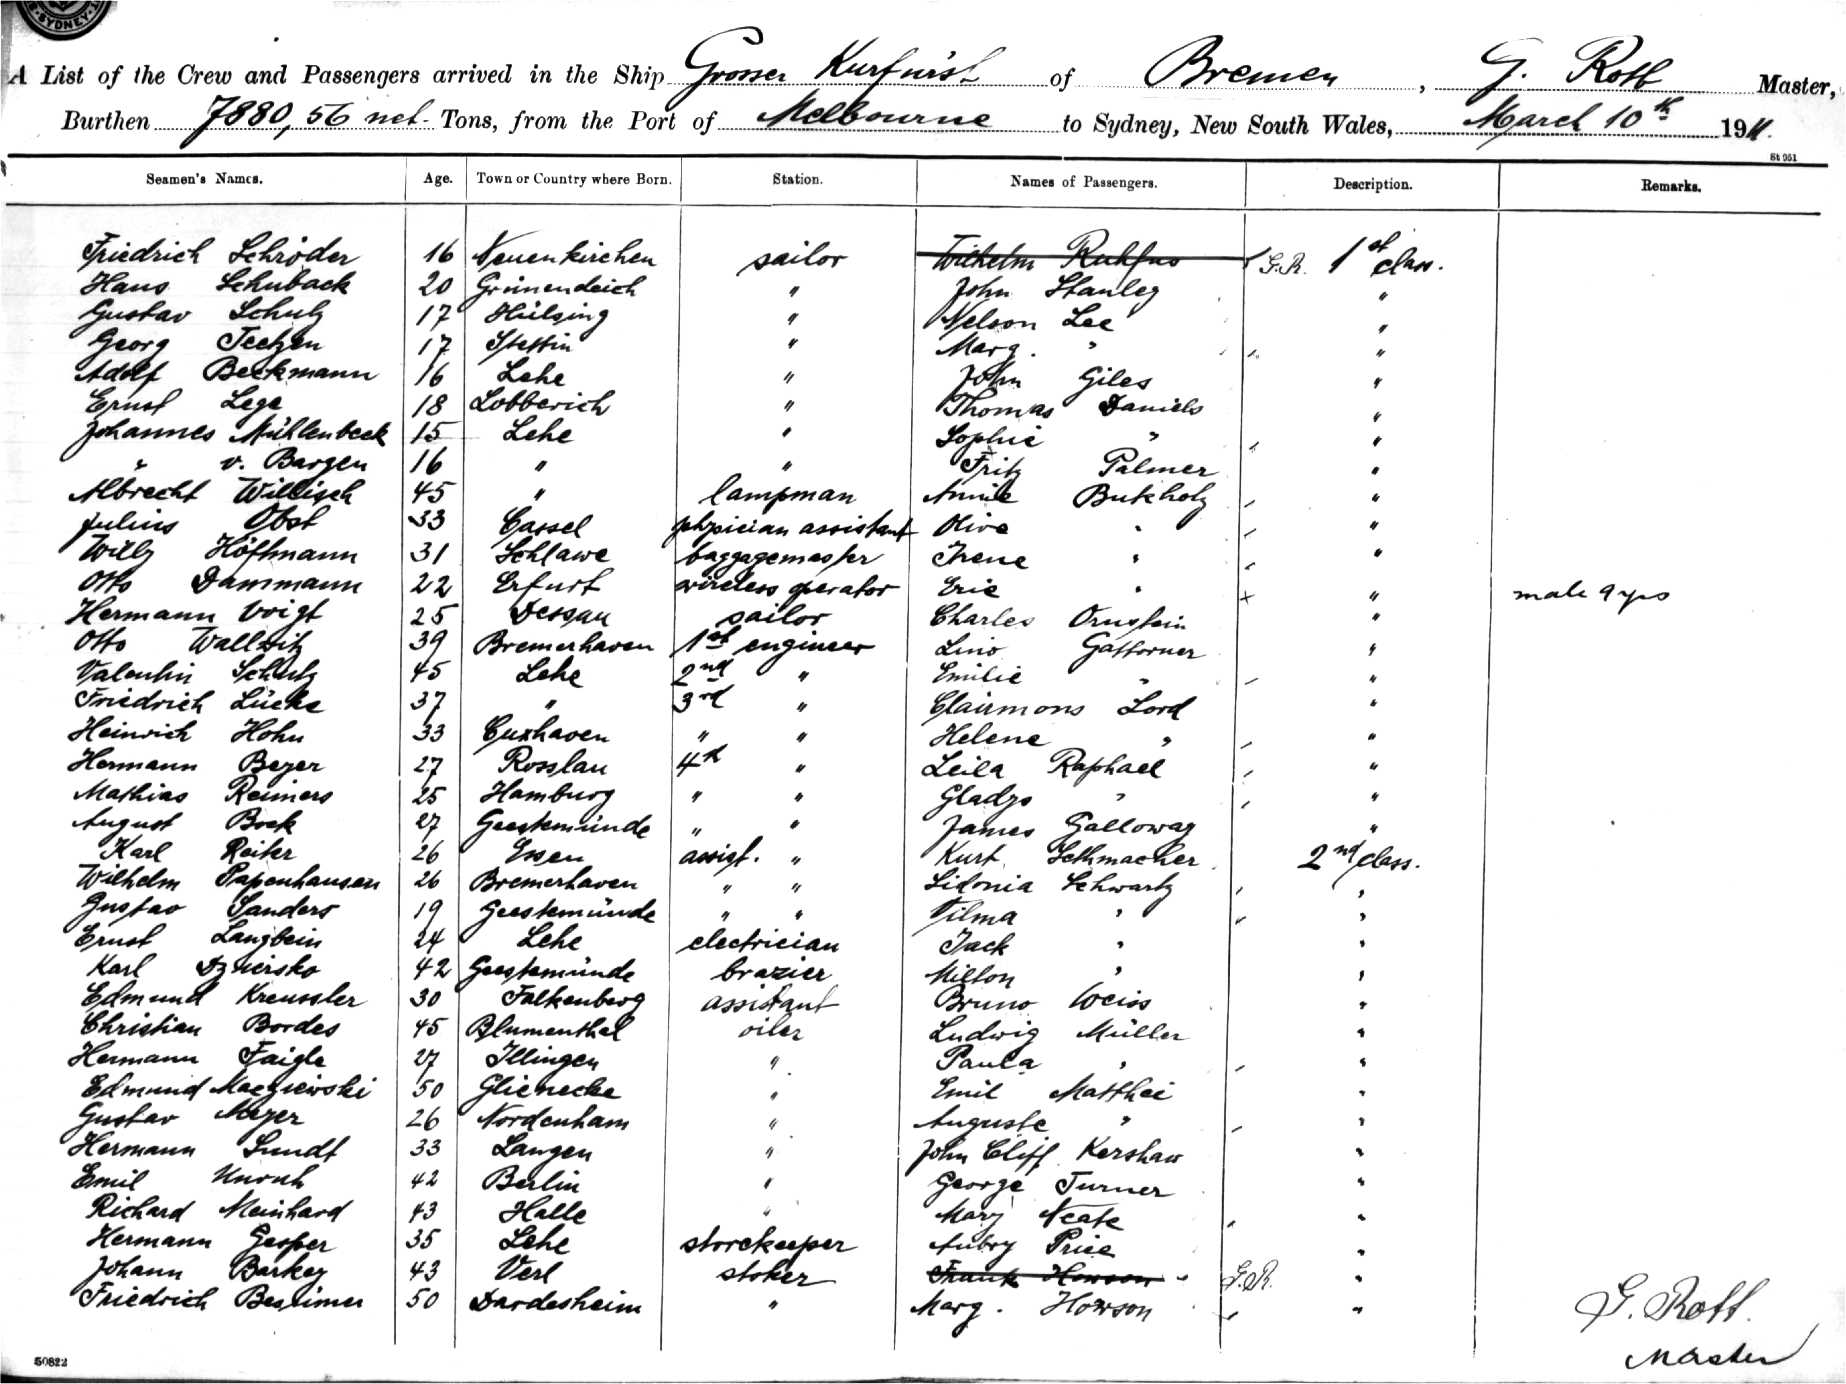 SYDNEY
A List of the Crew and Passengers arrived in the Ship Grosser Kurfürst of Bremen, G. Rott Master,
Burthen 7880,56 net Tons, from the Port of Melbourne to Sydney, New South Wales, March 10th 1911.
St 951
Seamen's Names. Age. Town or Country where Born. Station. Names of Passengers. Description. Remarks.
Friedrich Schröder 16 Neuenkirchen sailor Wilhelm Ruhfus G.R. 1st class.
Hans Schuback 20 Grünendeich " John Stanley "
Gustav Schulz 17 Hülsing " Nelson Lee "
Georg Teetzen 17 Stettin " Marg. " "
Adolf Beckmann 16 Lehe " John Giles "
Ernst Lege 18 Lobberich " Thomas Daniels "
Johannes Mühlenbeck 15 Lehe " Sophie " "
" v. Bargen 16 " " Fritz Palmer "
Albrecht Willisch 45 " lampman Annie Bukholz "
Julius Obst 33 Cassel physician assistant Olive " "
Willy Höffmann 31 Schlawe baggagemaster Irene " "
Otto Dammann 22 Erfurt wireless operator Eric " + " male 9 yrs
Hermann Voigt 25 Dessau sailor Charles Ornstein "
Otto Wallwitz 39 Bremerhaven 1st engineer Lino Gattorner "
Valentin Schulz 45 Lehe 2nd " Emilie " "
Friedrich Lücke 37 " 3rd " Clairmons Lord "
Heinrich Hohn 33 Cuxhaven " " Helene " "
Hermann Beyer 27 Rosslau 4th " Leila Raphael "
Mathias Reimers 25 Hamburg " " Gladys " "
August Bock 27 Geestemünde " " James Galloway "
Karl Reiter 26 Essen assist. " Kurt Sethmacher 2nd class.
Wilhelm Papenhausen 26 Bremerhaven " " Sidonia Schwartz "
Gustav Sanders 19 Geestemünde " " Vilma " "
Ernst Langbein 24 Lehe electrician Jack " "
Karl 42 Geestemünde brazier Milton " "
Edmund Kreussler 30 Falkenberg assistant Bruno Weiss "
Christian Bordes 45 Blumenthal oiler Ludwig Müller "
Hermann Faigle 27 Illingen " Paula " "
Edmund Maczniewski 50 Glienecke " Emil Matthei "
Gustav Meyer 26 Nordenham " Auguste " "
Hermann Sundt 33 Langen " John Cliff Kershaw "
Emil Unruh 42 Berlin " George Turner "
Richard Meinhard 43 Halle " Mary Neate "
Hermann Gesper 35 Lehe storekeeper Aubry Price "
Johann Barkey 43 Verl stoker Frank Howson G.R. "
Friedrich Bestimer 50 Dardesheim " Marg. Howson "
G. Rott.
Master
50822